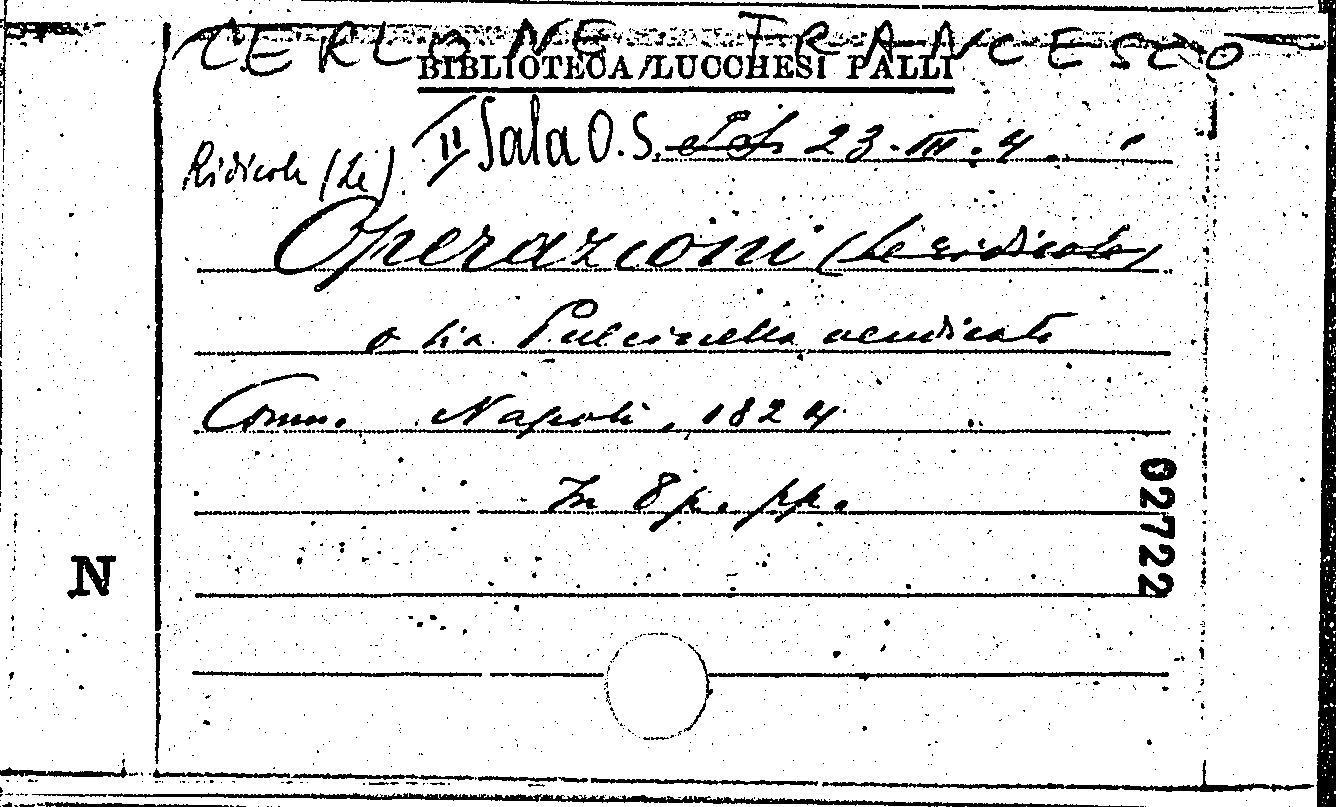 CERLONE FRANCESCO
BIBLIOTECA LUCCHESI PALLI
Ridicole (Le) II Sala O.S. 23. III. 4.
Operazioni (Le ridicole)
o sia Pulcinella vendicato
Comm. Napoli, 1824
In 8 p. pp.
02722
N